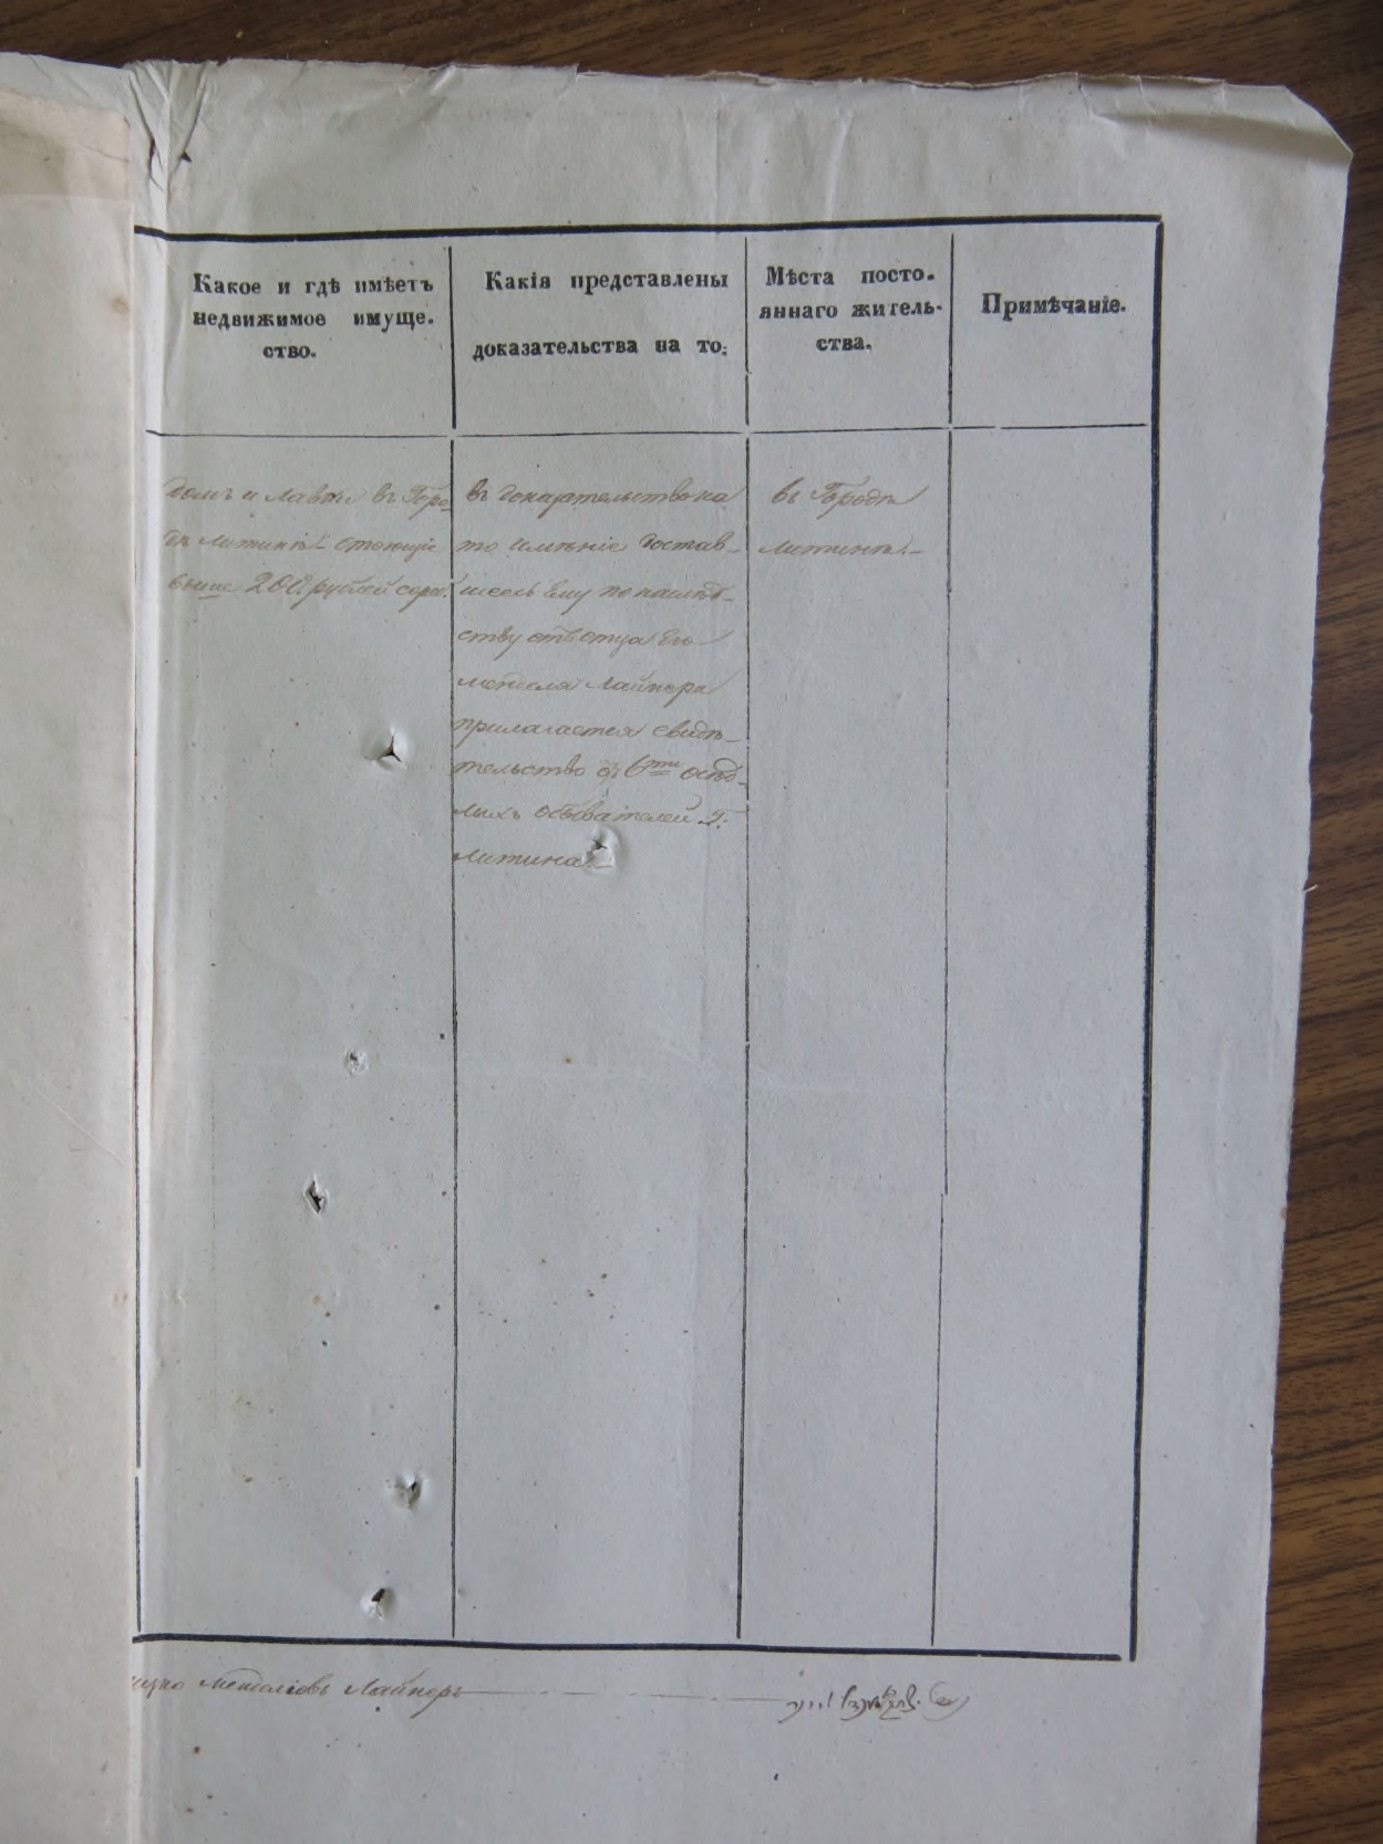 Какое и гдѣ имѣетъ
недвижимое имуще-
ство.
Какія представлены
доказательства на то.
Мѣста посто-
яннаго житель-
ства.
Примѣчаніе.
домъ и лавки въ Горо-
дѣ Литинѣ стоющіе
выше 200 рублей сереб.
въ доказательство на
то имѣніе достав-
шееся Ему по наслѣд-
ству отъ отца Его
Менделя Лайнера
прилагается свидѣ-
тельство 6ти осѣд-
лыхъ обывателей Г.
Литина
въ Городѣ
Литинѣ.
Менделіовъ Лайнеръ